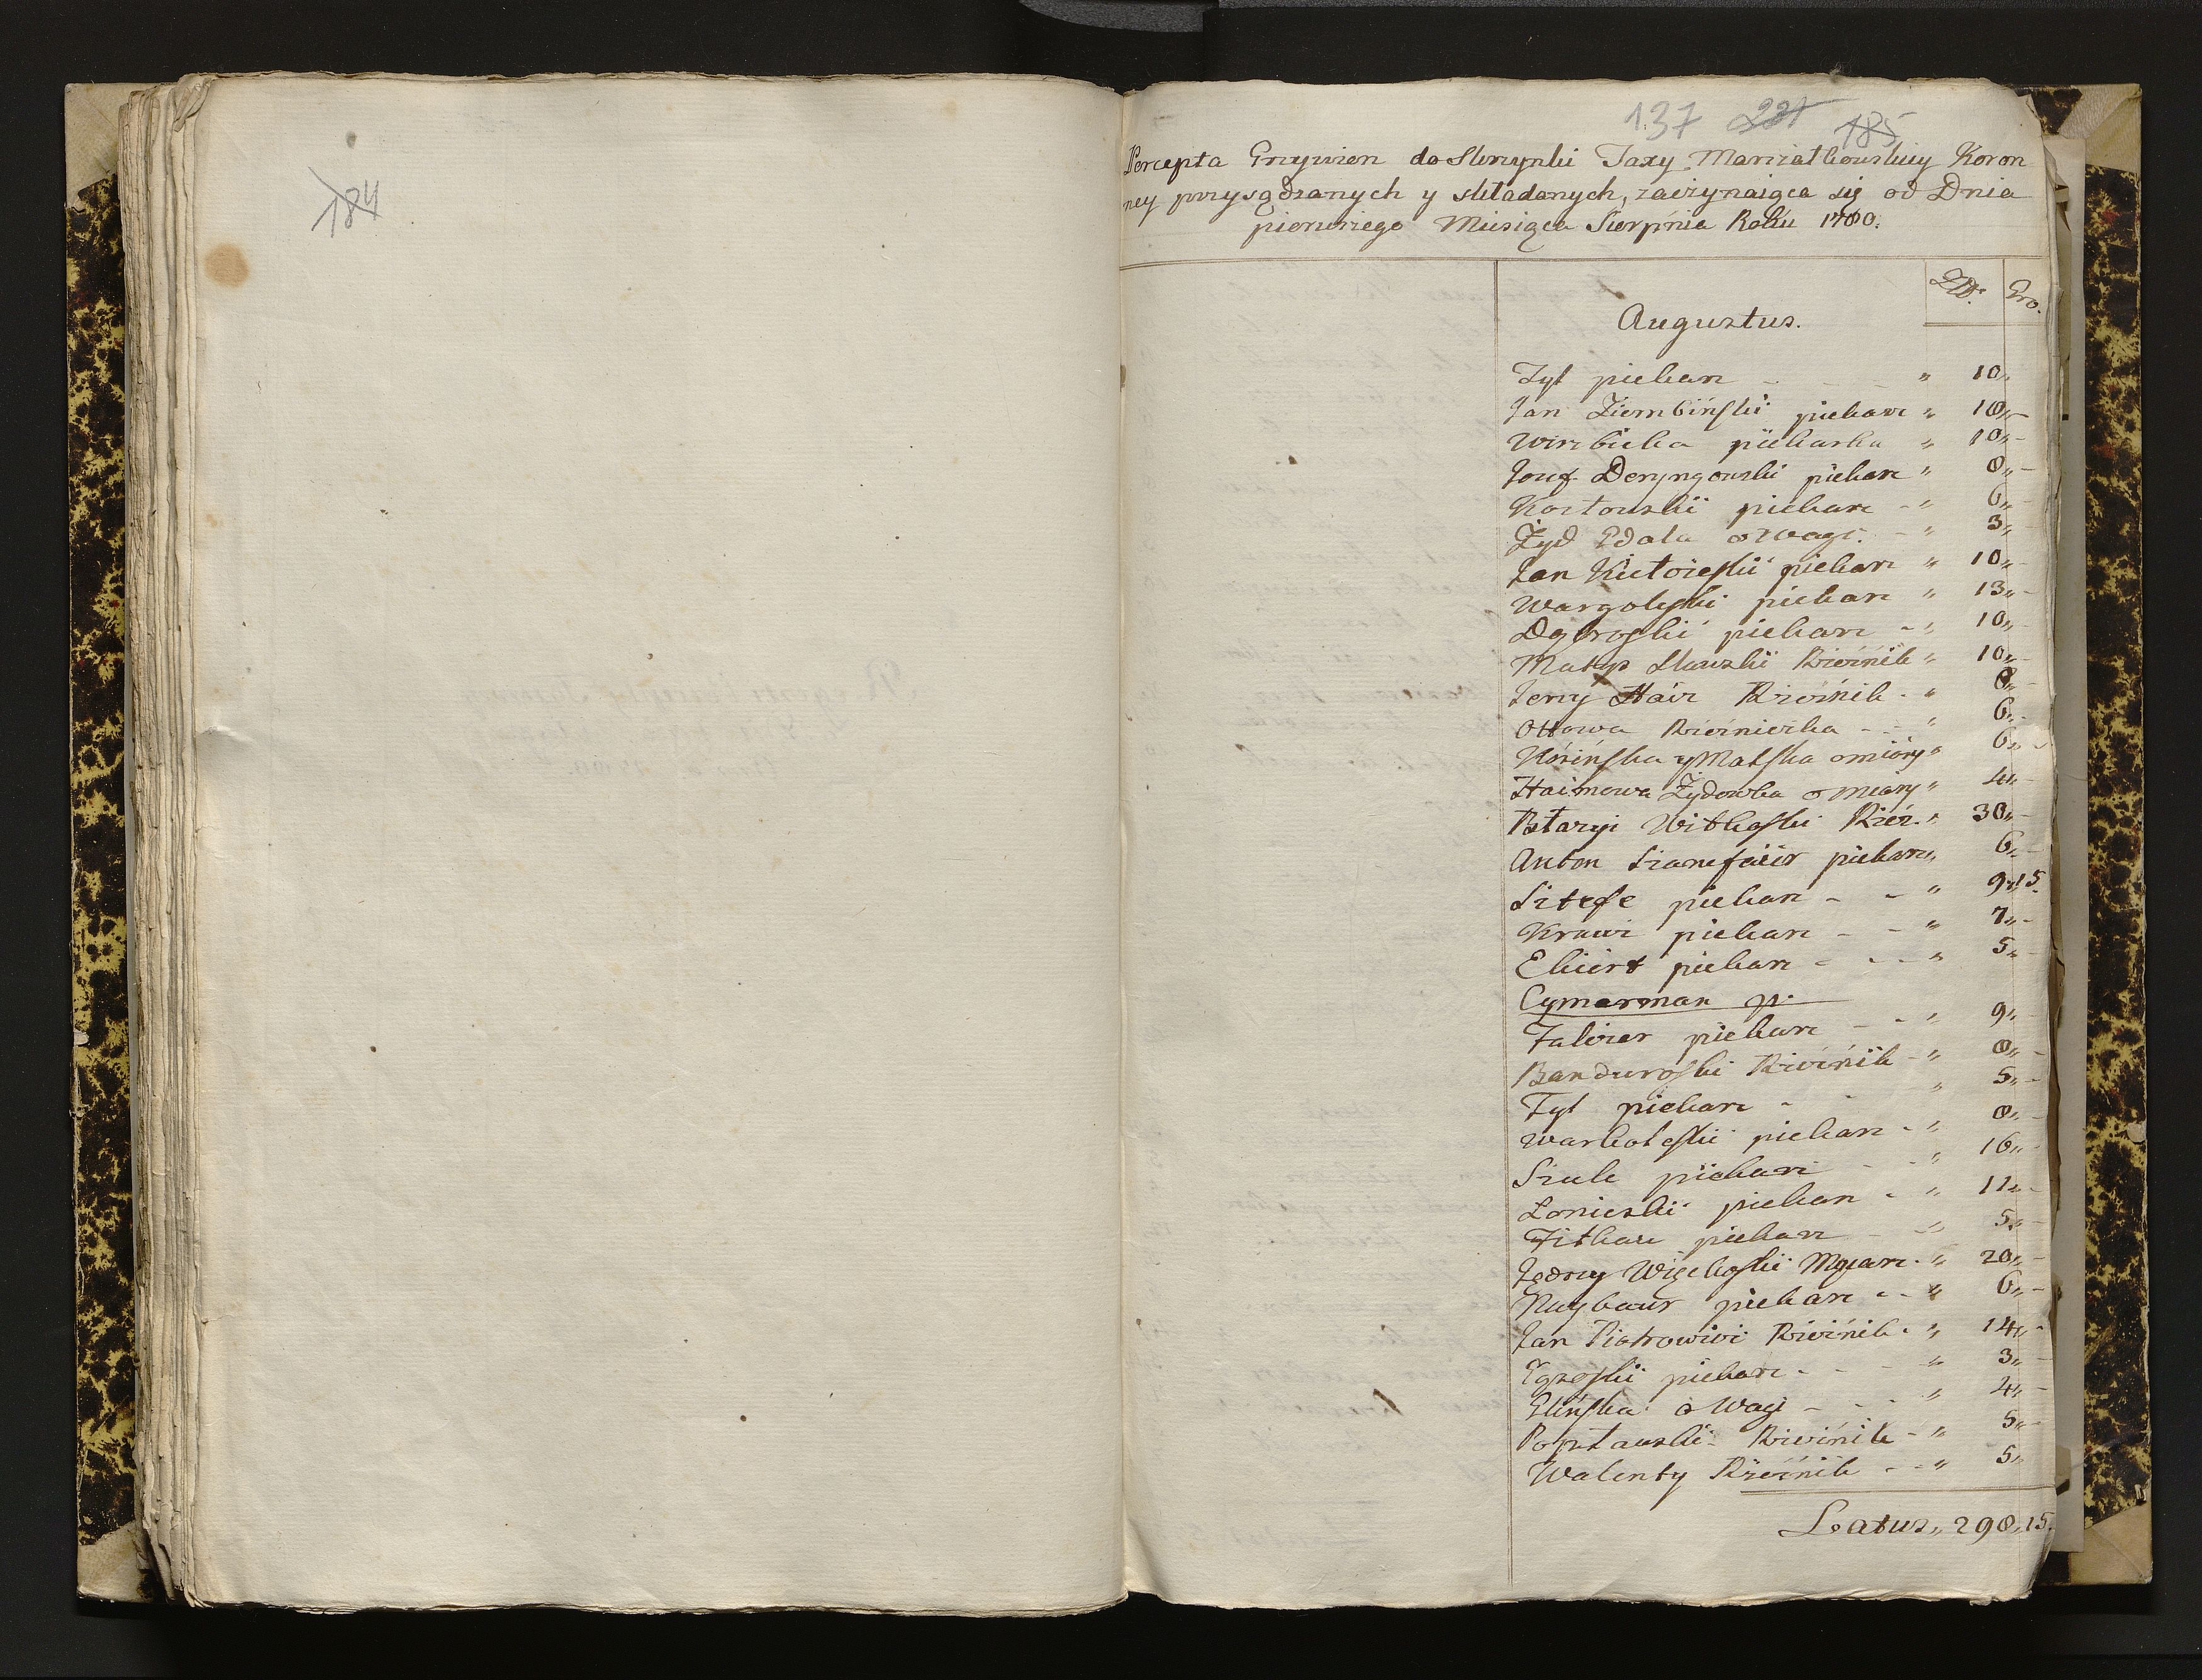 184
137 221 185
Percepta Grzywien do Skrzynki Taxy Marszałkowskiey Koron
ney przysądzanych y składanych, zaczynaiąca się od Dnia
pierwszego Miesiąca Sierpnia Roku 1780.
Złł. Gro.
Augustus.
Tyl piekarz - - - " 10„
Jan Ziembiński piekarz " 10„-
Wirzbicka piekarka " 10„-
Jozef Deryngowski piekarz " 8„-
Kozłowski piekarz - " 6„-
Żyd Edala o wagę. - " 3„-
Jan piekarz " 10„-
Wargoleski piekarz " 13„-
piekarz - " 10„
Matys Skawski Rzeźnik " 10„-
Jerzy Hair Rzeźnik - " 8„-
Ottowa Rzeźniczka - - " 6„-
Kozińska y Malska o miary " 6„-
Haimowa Żydowka o miary " 4„-
Błarzy Witkoski Rzeź. " 30„-
Anton piekarz „ 6„-
Sztefe piekarz - - " 9„15.
Krawz piekarz - - " 7„-
Ekiert piekarz - - - " 5„-
Cymerman p.
Falszer piekarz - - " 9„-
Banduroski Rzeźnik - " 8„-
Tyl piekarz - - " 5„-
Warkoleski piekarz - " 8„-
Szulc piekarz - - " 16„-
Łonieski piekarz - " 11„-
Fitkau piekarz - " 5„-
Jędrzy Więckoski Mączarz. " 20„-
Naybaur piekarz - - " 6„-
Jan Piotrowicz Rzeźnik - " 14„-
piekarz - - - " 3„-
Glińska o Wagę - - - " 4„-
Popławski Rzeźnik - " 5„-
Walenty Rzeźnik - - " 5„
Latus„ 298„15.